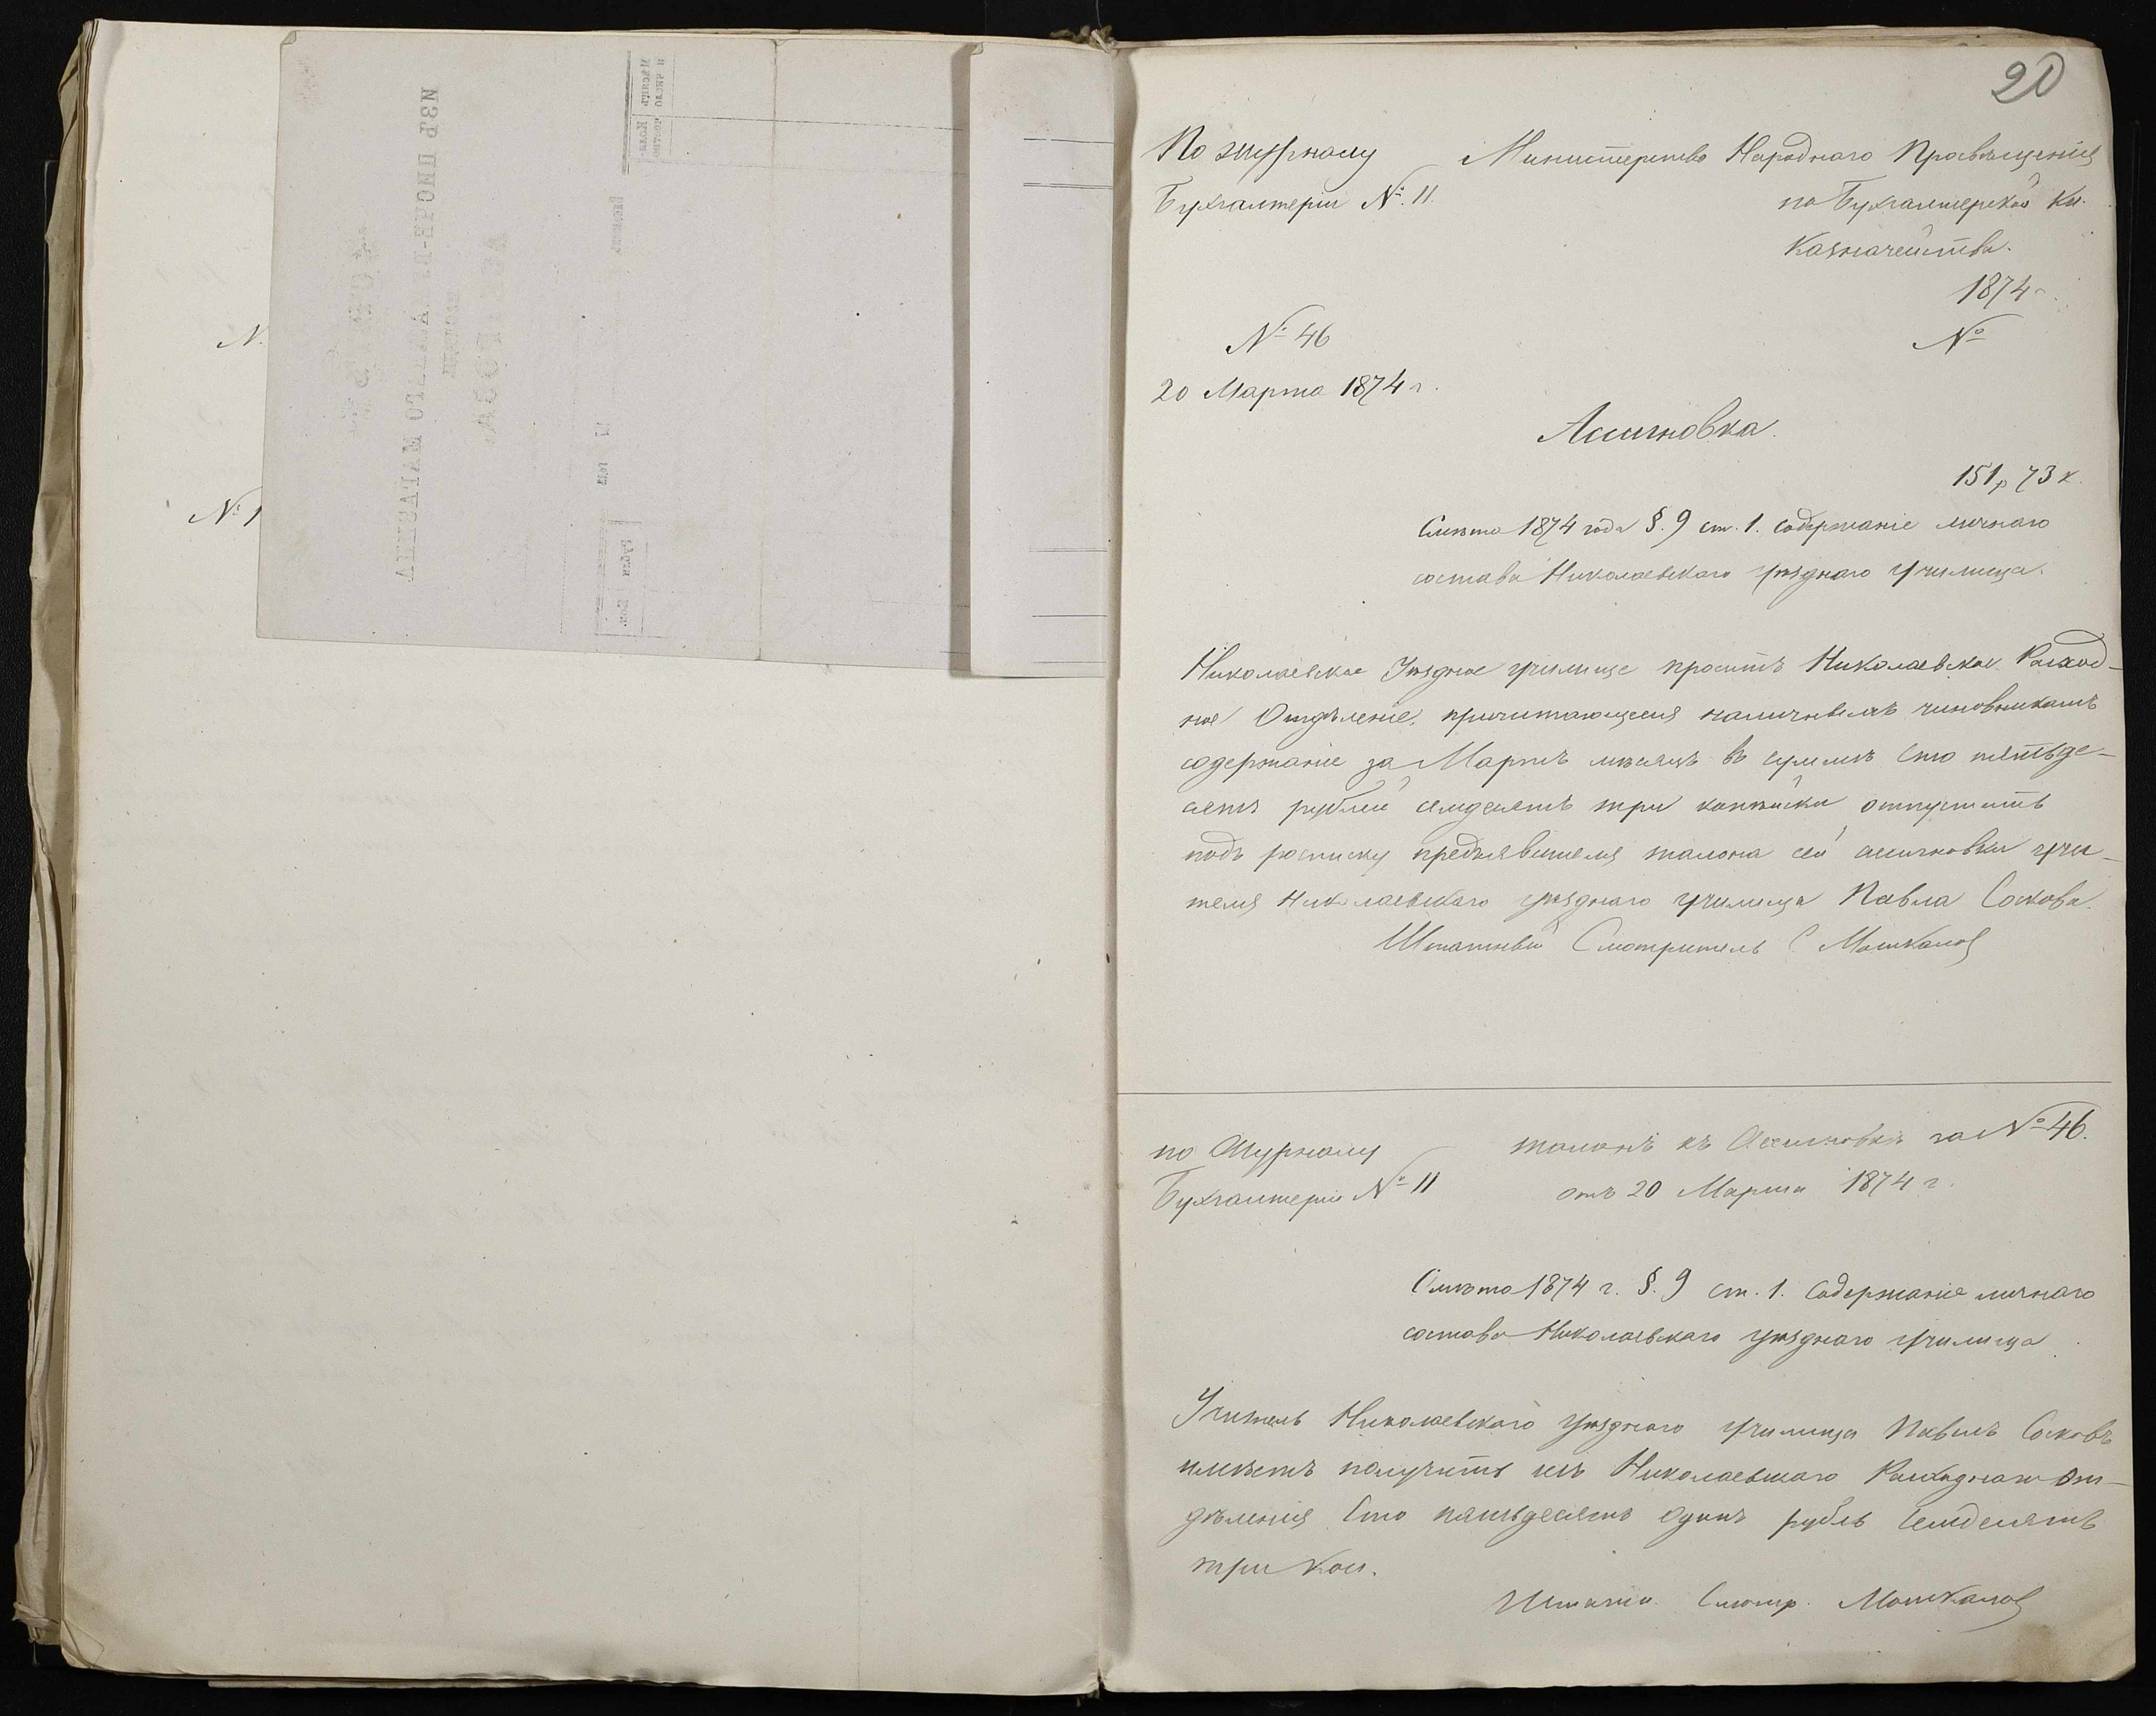 20
По журналу
Бухгалтеріи №. 11.
Министерство Народнаго Просвѣщенія
по Бухгалтерской Кн.
Казначейства.
1874 г.
№
№ 46
20 Марта 1874 г.
Ассигновка.
151 р 73 к.
Смѣта 1874 года §. 9 ст. 1. содержаніе личнаго
состава Николаевскаго уѣзднаго училища.
Николаевское Уѣздное училище проситъ Николаевское Расход-
ное Отдѣленіе, причитающееся наличнымъ чиновникамъ
содержаніе за Мартъ мѣсяцъ въ суммѣ Сто пятьде-
сятъ рублей семдесятъ три копѣйки отпустить
подъ росписку предъявителя талона сей ассигновки учи-
теля Николаевскаго уѣзднаго училища Павла Соскова.
Штатный Смотритель С Машканов
по Журналу
Бухгалтеріи № 11
талонъ къ Ассигновкѣ за № 46.
отъ 20 Марта 1874 г.
Смѣта 1874 г. §. 9 ст. 1. Содержаніе личнаго
состава Николаевскаго уѣзднаго училища
Учитель Николаевскаго уѣзднаго училища Павелъ Сосковъ
имѣетъ получить изъ Николаевскаго Расходнаго От-
дѣленія Сто пятьдесятъ одинъ рубль Семдесятъ
три коп.
Штатн. Смотр. Машканов
№.
№ 1
ИЗЪ ПИСЧЕ-БУМАЖНАГО МАГАЗИНА